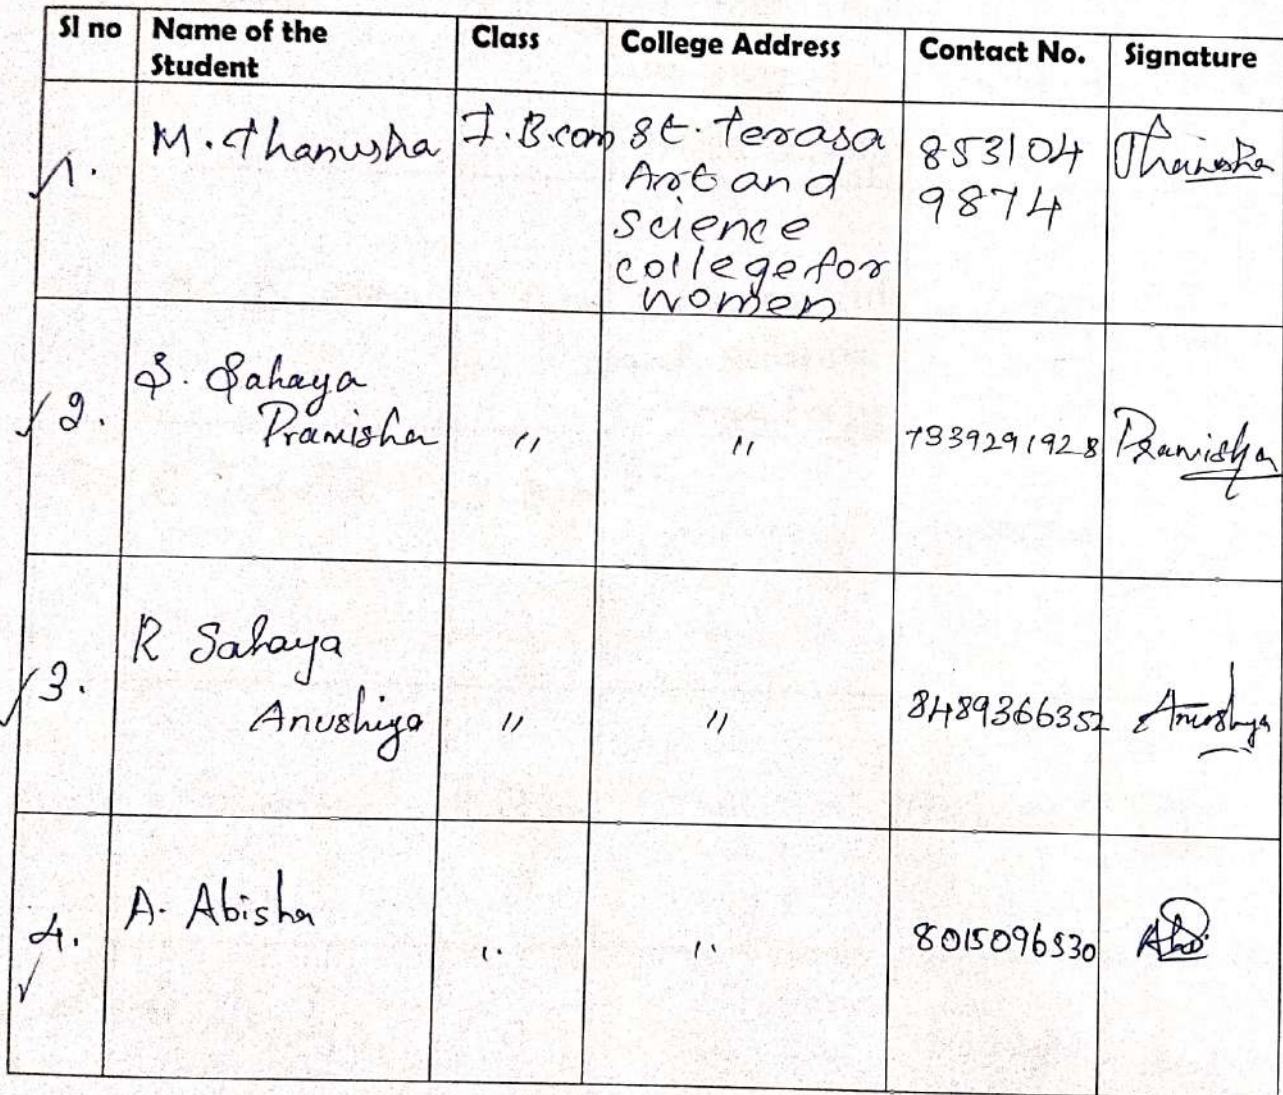 Sl no Name of the Student Class College Address Contact No. Signature
1. M. Thanusha I. B.com St. Terasa
Art and
science
college for
women
853104
9874
Thanusha
2. S. Sahaya
Pranisha " " 7339291928 Pranisha
3. R Sahaya
Anushiya " " 8489366352 Anushya
4. A. Abisha " " 8015096530 Abi